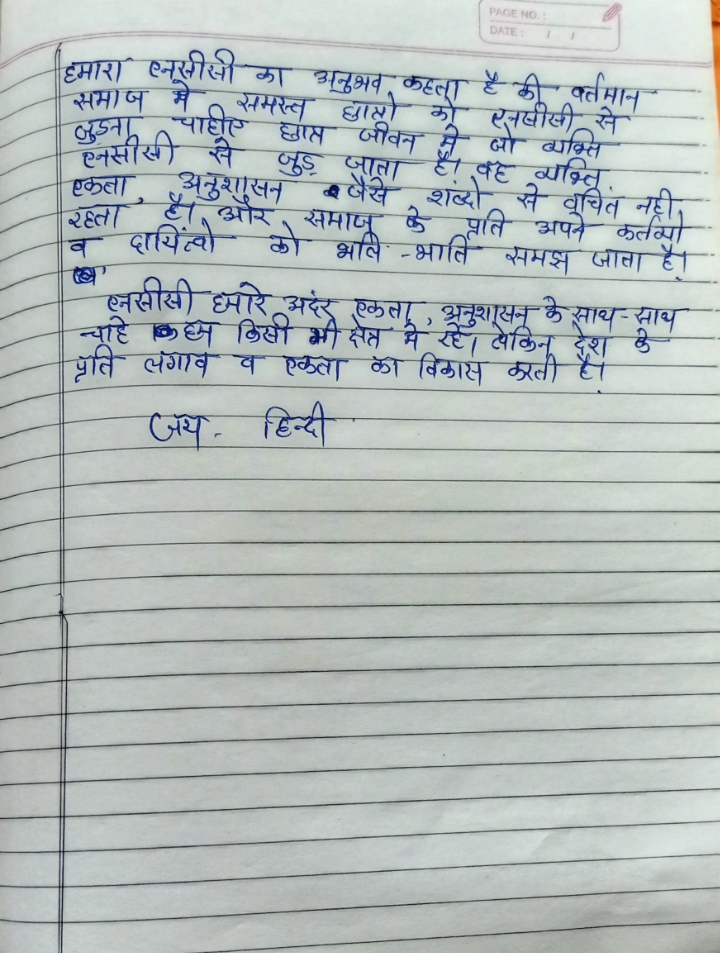 PAGE NO. :
DATE : / /
हमारा एनसीसी का अनुभव कहता है की वर्तमान
समाज मे समस्त छात्रो को एनसीसी से
जुडना चाहीए छात्र जीवन मे जो व्यक्ति
एनसीसी से जुड़ जाता है। वह व्यक्ति
एकता, अनुशासन जैसे शब्दो से वंचित नही
रहता है। और समाज के प्रति अपने कर्तव्यो
व दायित्वो को भलि-भाति समझ जाता है।
एनसीसी हमारे अदंर एकता, अनुशासन के साथ-साथ
चाहे हम किसी भी क्षेत्र मे रहे। लेकिन देश के
प्रति लगाव व एकता का विकास करती है।
जय - हिन्दी